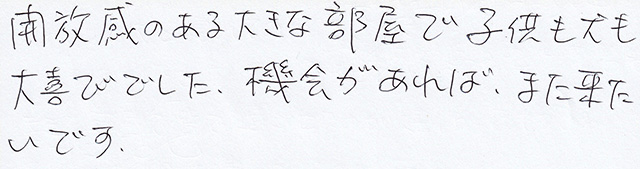 開放感のある大きな部屋で子供も犬も
大喜びでした、機会があれば、また来た
いです.